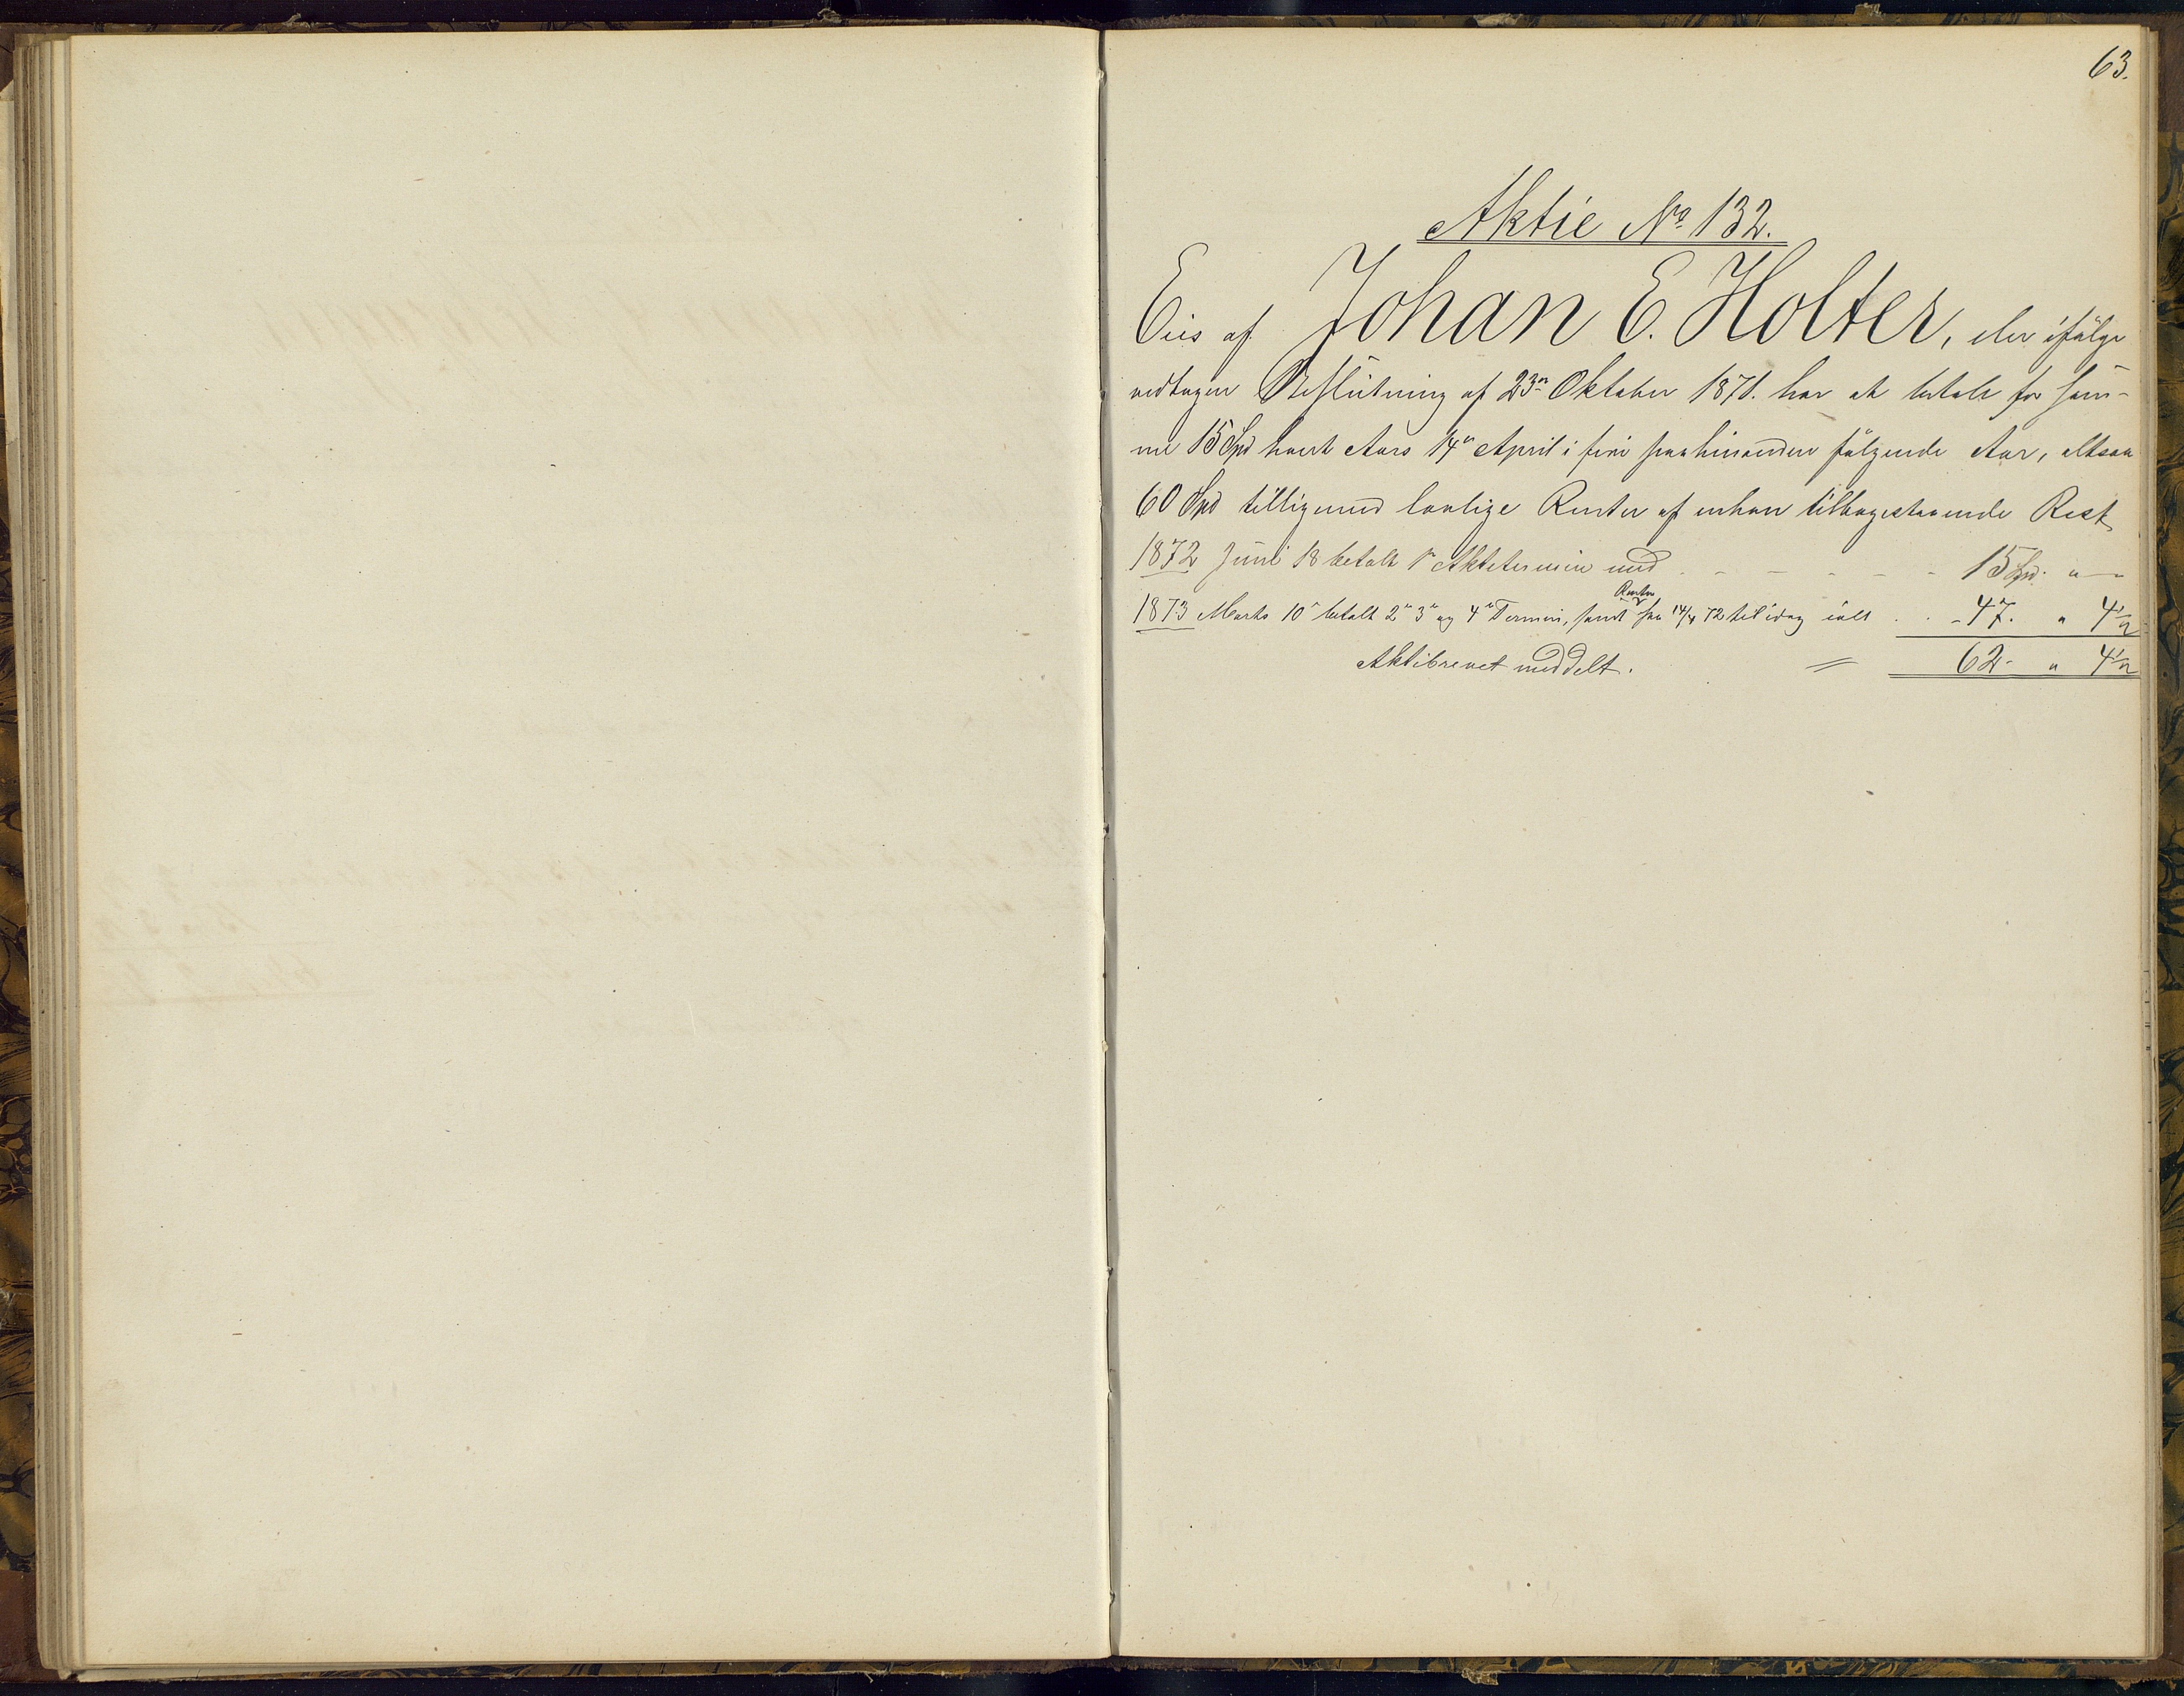 63.
Aktie No 132.
Eies af Johan E. Holter, der ifølge
vedtagen Beslutning af 23de Oktober 1871. har at betale for sam-
me 15 Spd hvert Aars 14de April i fire paahinanden følgende Aar, altsaa
60 Spd tilligemed lovlige Renter af enhver tilbagestaaende Rest
1872 Juni 18 betalt 1ste Aktietermin med - - - - - 15 Spd. " —
Renter
1873 Marts 10de betalt 2den 3die og 4de Termin, samt fra 14/4 72 til idag ialt . . - 47. " 4 1/2
Aktiebrevet meddelt. = 62 - " 4 1/2